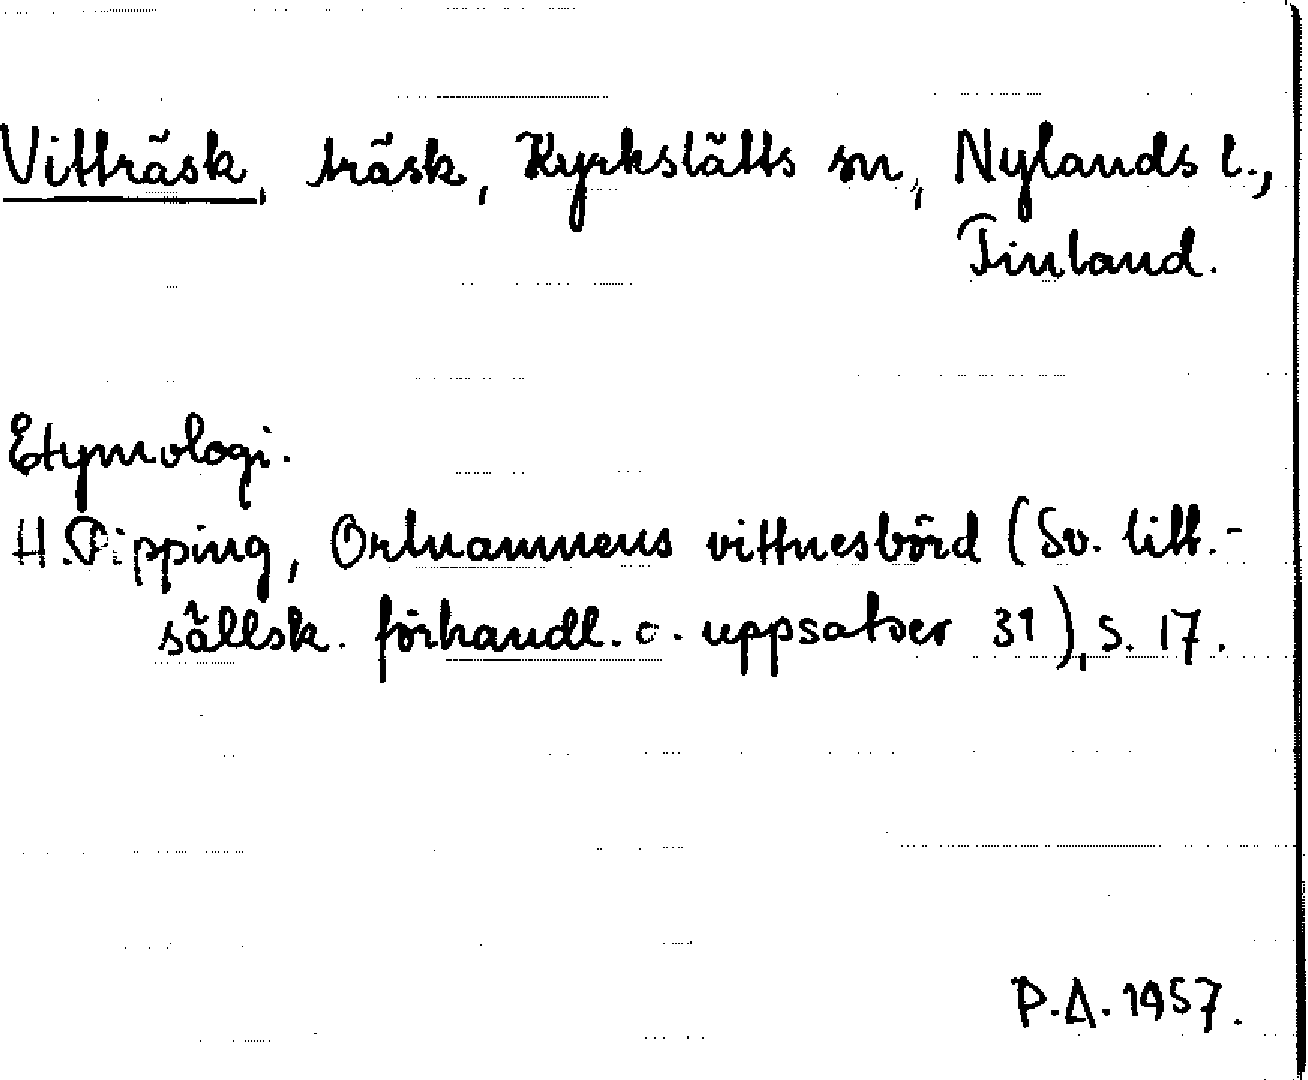 Vitträsk, träsk, Kyrkslätts sn, Nylands l.,
Finland.
Etymologi.
H. Pipping, Ortnamnens vittnesbörd (Sv. litt.-
sällsk. förhandl. o. uppsatser 31), s. 17.
P.A. 1957.